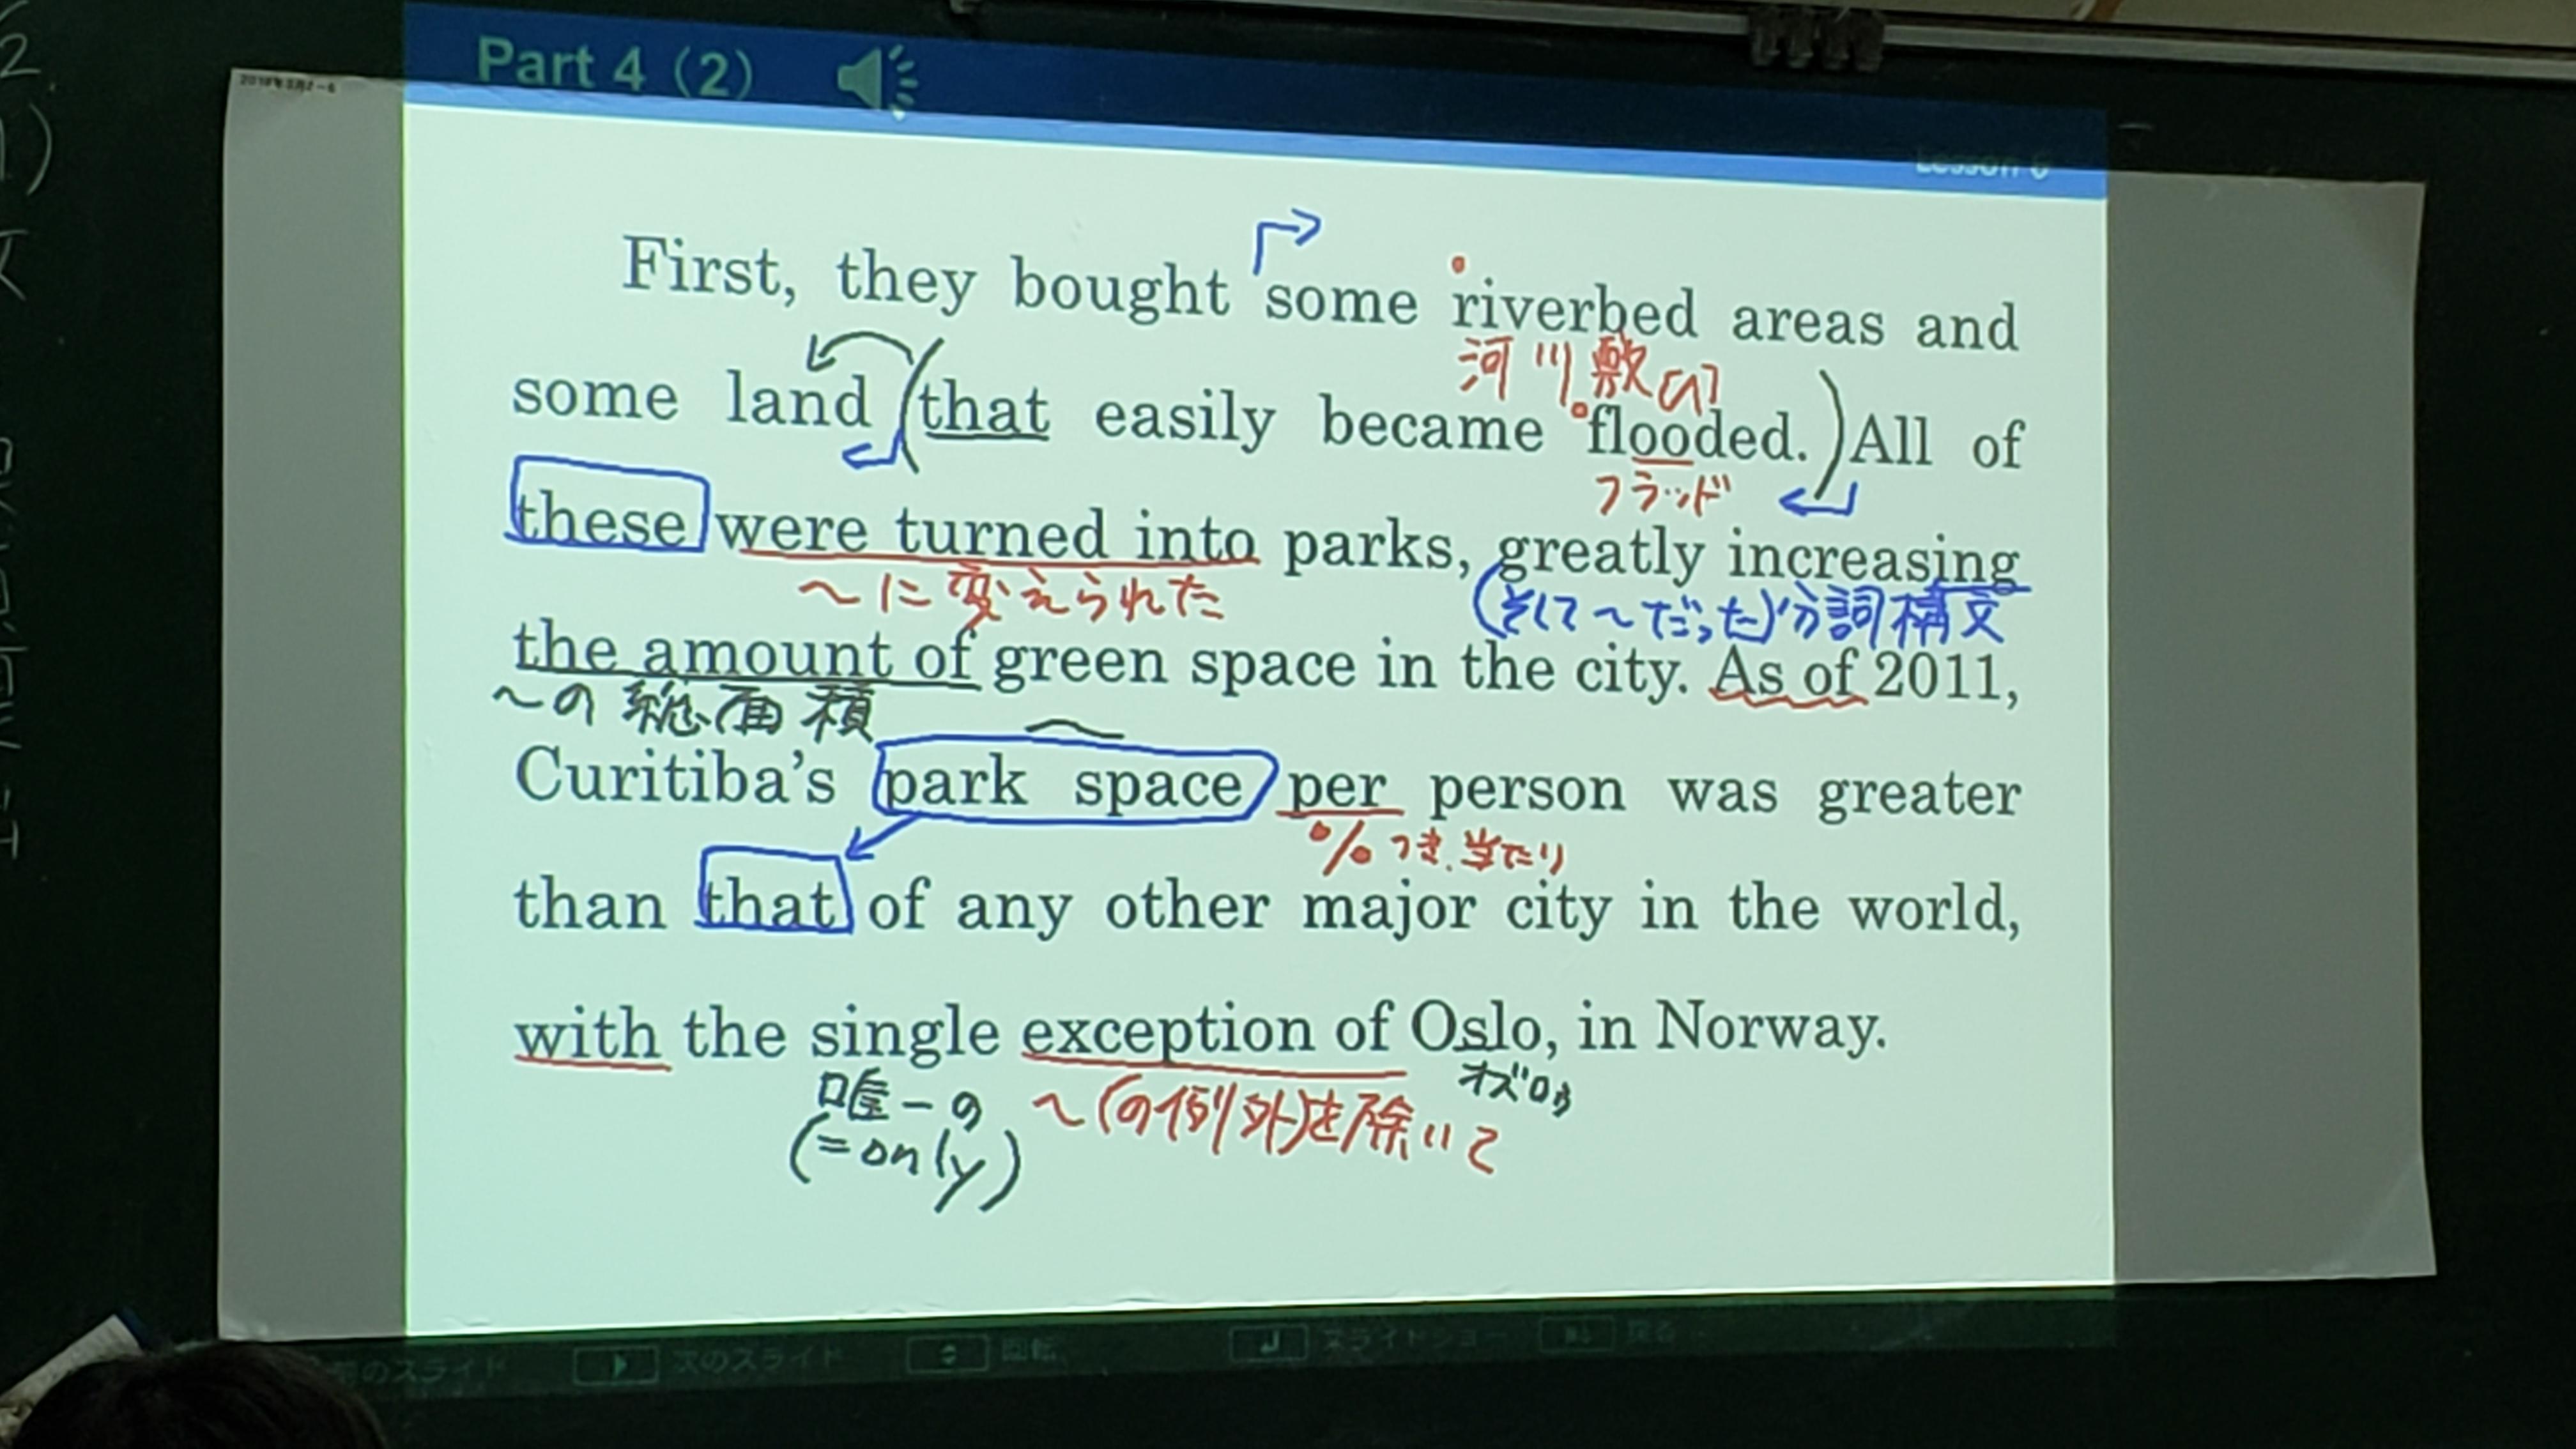 Part 4 (2)
Lesson 6
First, they bought some riverbed areas and
河川敷
some land (that easily became flooded.) All of
フラッド
these were turned into parks, greatly increasing
〜に変えられた (そして〜だった)分詞構文
the amount of green space in the city. As of 2011,
〜の総面積
Curitiba's park space per person was greater
% つき、当たり
than that of any other major city in the world,
with the single exception of Oslo, in Norway.
唯一の 〜(の例外)を除いて オズロゥ
(=only)
のスライド 次のスライド 回転 スライドショー 戻る